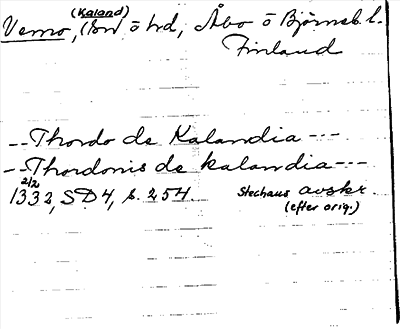 (Kaland)
Vemo, (sn ö hd, Åbo ö Björneb. l.
Finland
-- Thordo de Kalandia ---
-- Thordonis de kalandia ---
2/2
1332, SD4, s. 254. Stechaus avskr.
(efter orig.)